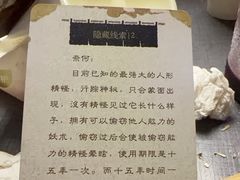 隐藏线索|2
奈何:
目前已知的最强大的人形
精怪,行踪神秘,只会蒙面出
现,没有精怪见过它长什么样
子,拥有可以偷窃他人能力的
妖术,偷窃过后会使被偷窃能
力的精怪晕眩,使用期限是十
五年一次。而十五年时间一